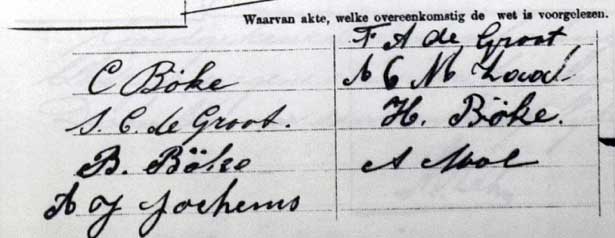 Waarvan akte, welke overeenkomstig de wet is voorgelezen.
F A de Groot
C Böke
A C M
S. C. de Groot.
H. Böke.
B. Böke
A Mol
A J Jochems